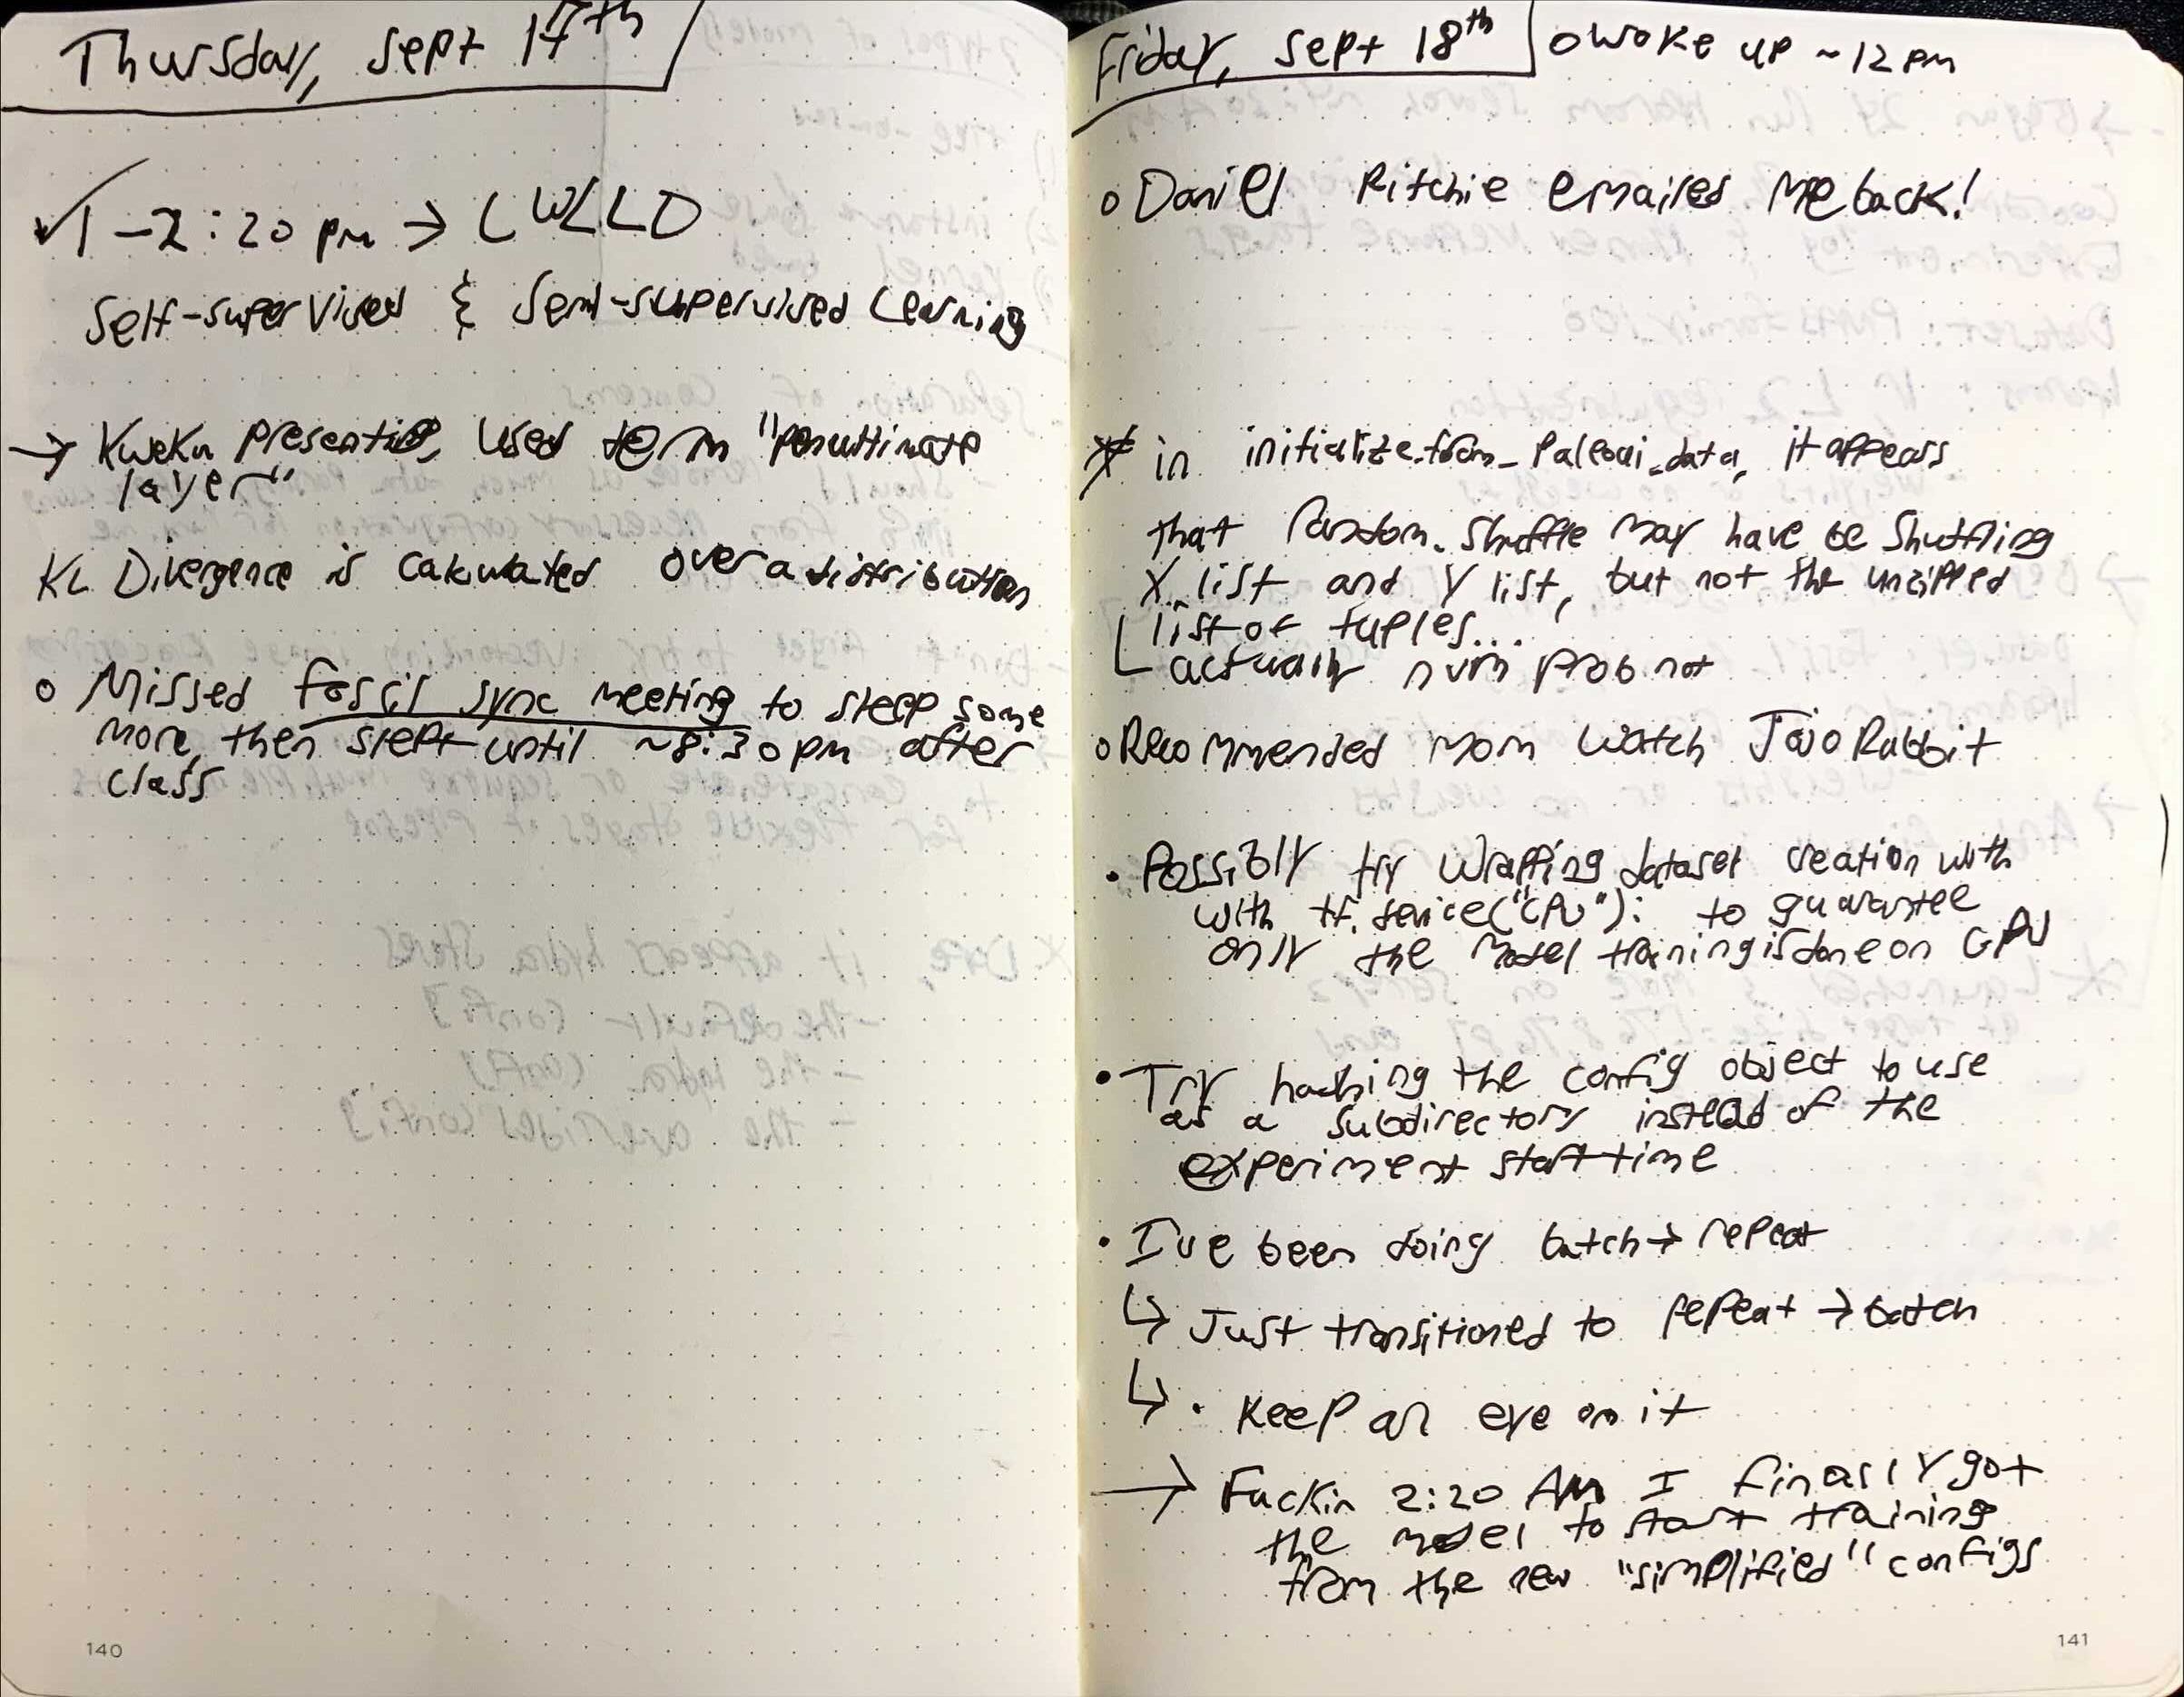 Thursday, Sept 17th
✓ 1-2:20 pm → LWLLD
Self-supervised & Semi-supervised Learning
→ Kweku presenting, used term "penultimate
layer"
KL Divergence is calculated over a distribution
o Missed fossil sync meeting to sleep some
more, then slept until ~8:30pm after
class
140
Friday, Sept 18th
o Woke up ~12 pm
o Daniel Ritchie emailed me back!
* in initialize_from_paleoai_data, it appears
that random.shuffle may have be shuffling
X list and Y list, but not the unzipped
list of tuples...
↳ actually nvm prob not
o Recommended mom watch Jojo Rabbit
• Possibly try wrapping dataset creation with
with tf.device("CPU"): to guarantee
only the model training is done on GPU
• Try hashing the config object to use
as a subdirectory instead of the
experiment start time
• I've been doing batch → repeat
↳ Just transitioned to repeat → batch
↳ • Keep an eye on it
→ Fuckin 2:20 AM I finally got
the model to start training
from the new "simplified" configs
141